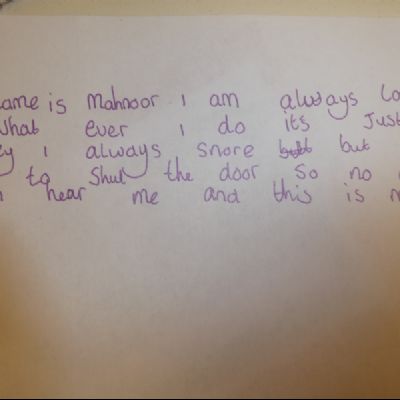 ame is Mahnoor i am always
What ever i do its Just
i always snore but but
to Shut the door so no
hear me and this is